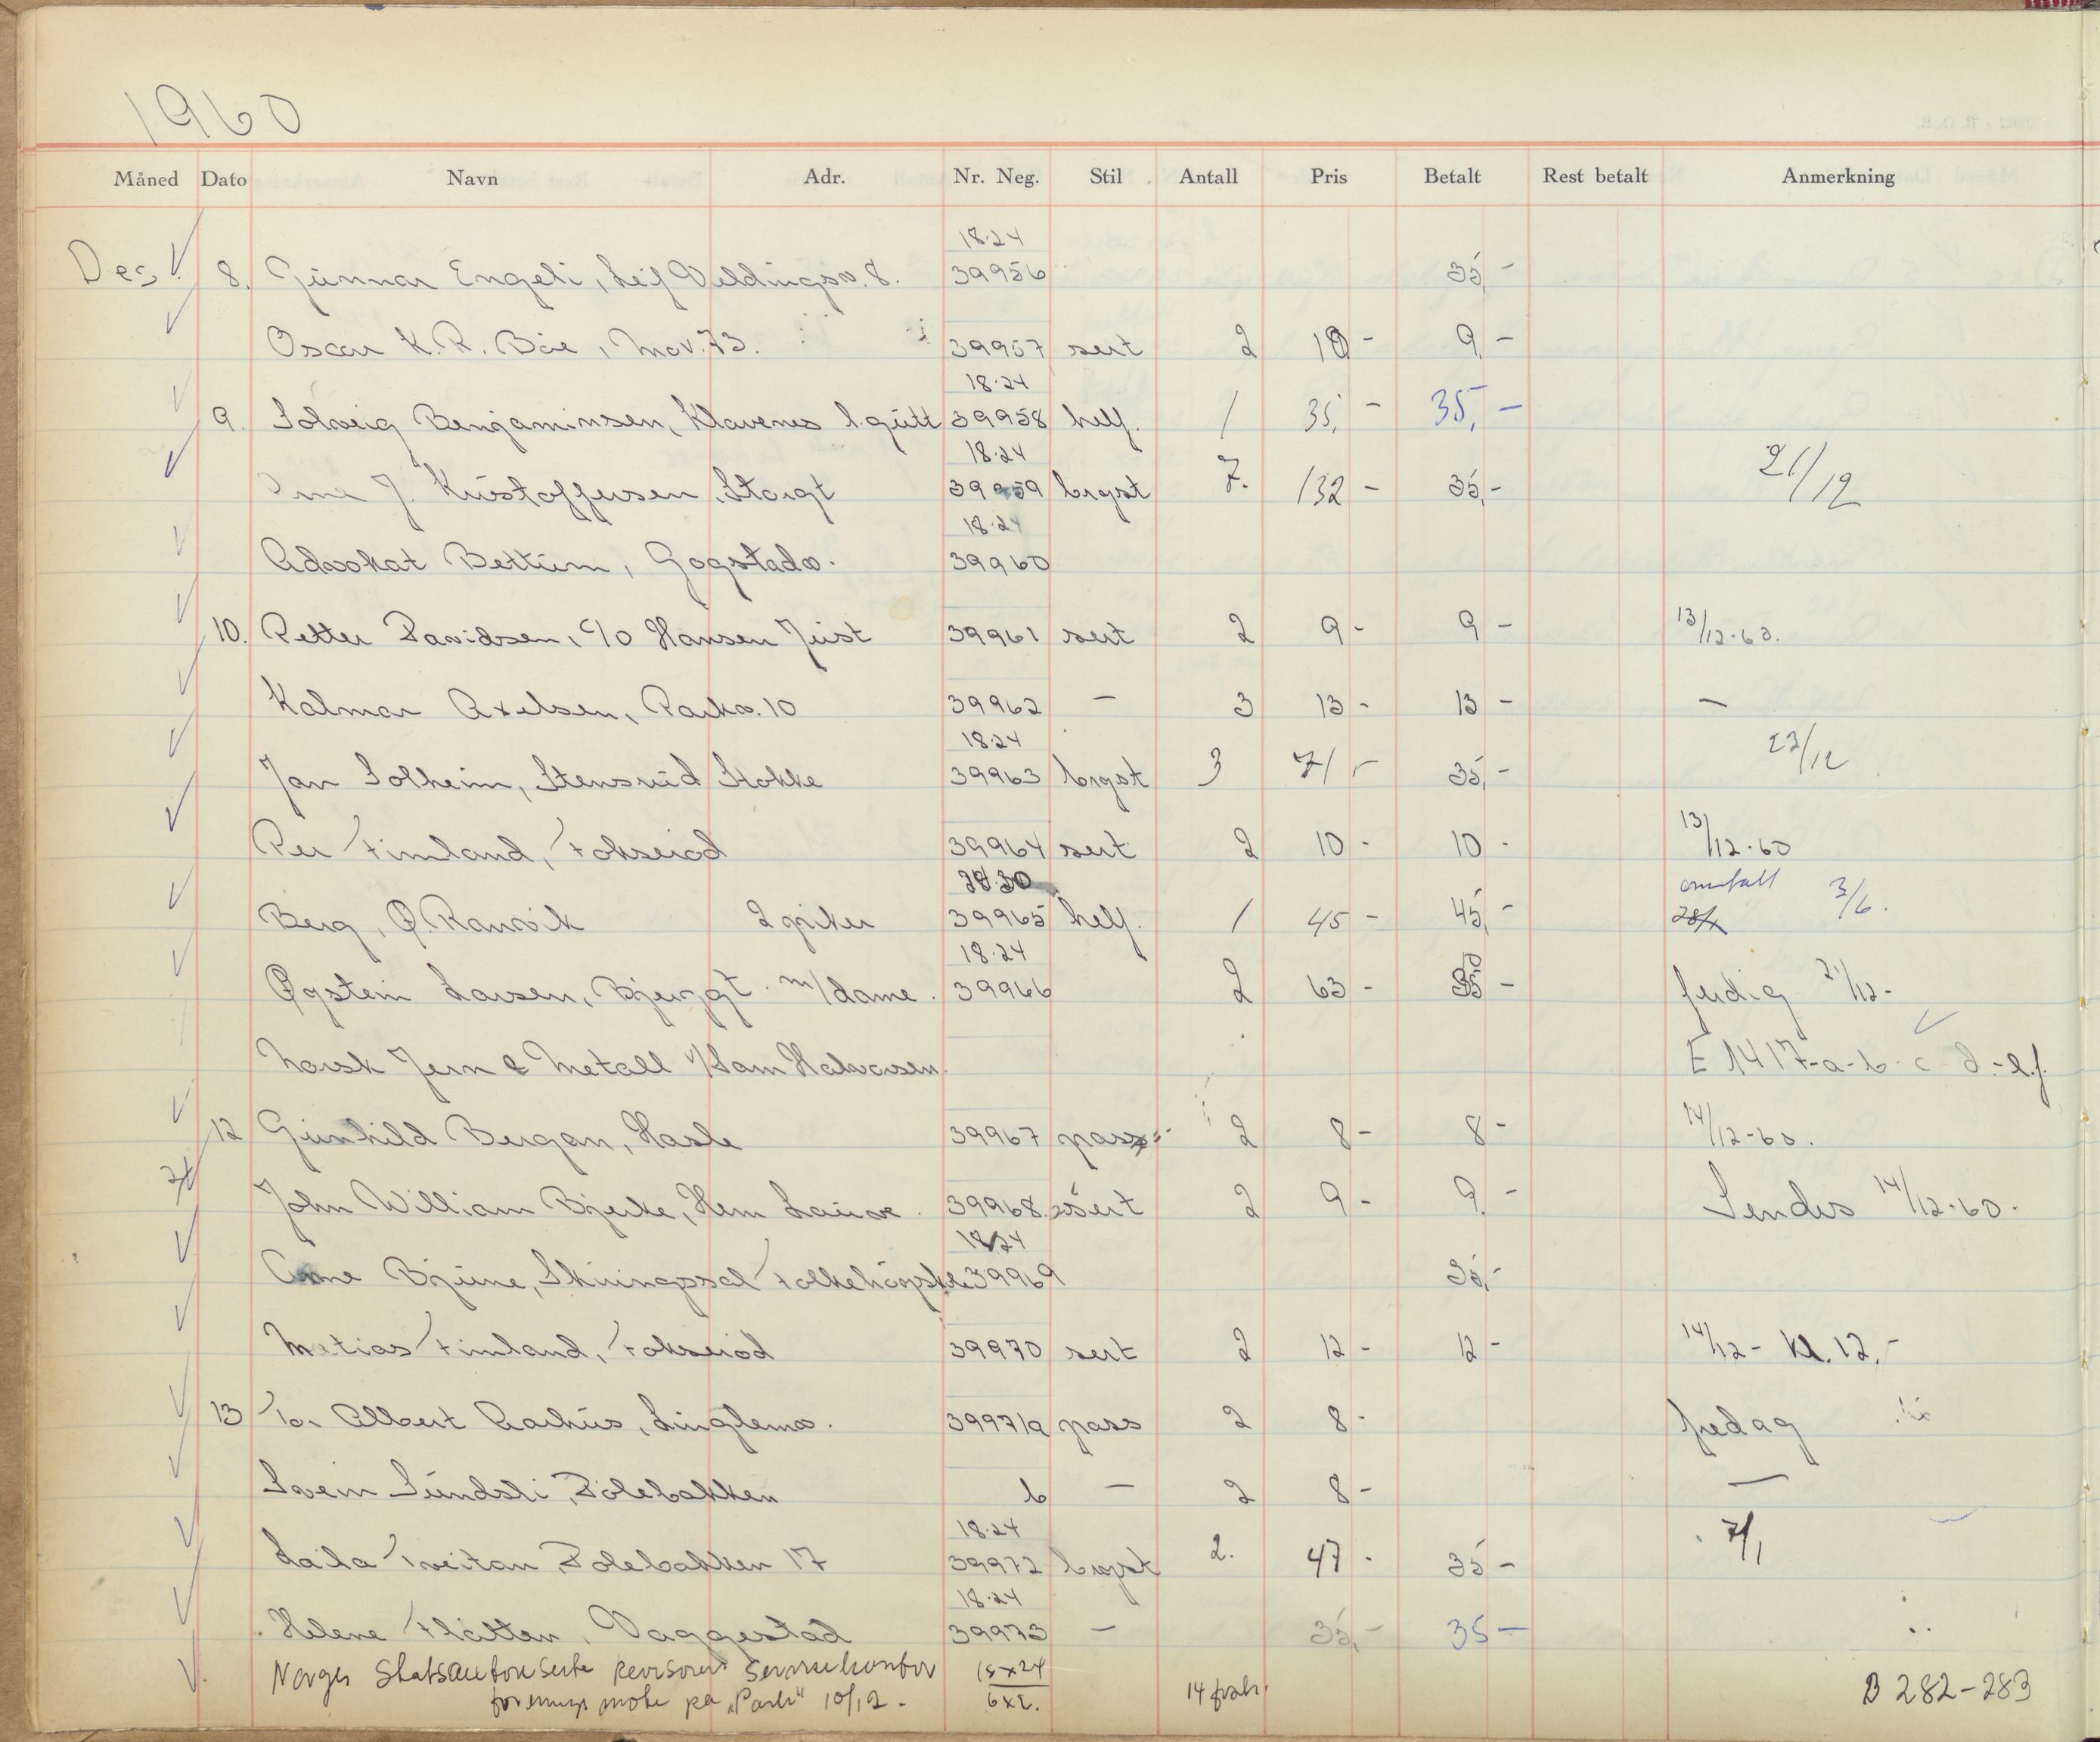 1960
Måned Dato Navn Adr. Nr. Neg. Stil Antall Pris Betalt Rest betalt Anmerkning
18·24
Des. 8. Gunnar Engeli, Leif Weldingsv. 8. 39956 35,-
Oscar K. R. Bøe, 39957 sert 2 10- 9,-
18·24
9. Solveig Benjaminsen, Klavenes l. gutt 39958 helf. 1 35,- 35,-
18·24
J. Kristoffersen, Storgt 39959 bryst 7. 132- 35,- 21/12
18·24
Advokat Bettum, Gogstadv. 39960
10. Petter Davidsen, c/o Hansen Just 39961 sert 2 9- 9- 13/12-60.
Kalmar Axelsen, Parkv. 10 39962 — 3 13- 13- —
18·24
Jan Solheim, Stensrud Stokke 39963 bryst 3 71- 35,- 23/12
Per Fimland, Fokserød 39964 sert 2 10- 10- 13/12-60
omfatt
Berg, Ø. Ranvik 2 piker 39965 helf. 1 45- 45,- 3/6.
18·24
Øystein Larsen, Bjerggt. m/dame. 39966 2 63- 35- ferdig 21/12-
Norsk Jern & Metall v/ Sam Halvorsen. E 1417-a-b-c-d-e.f.
12 Gunhild Bergan, Hasle 39967 pass 2 8- 8- 14/12-60.
John William Bjerke, Hem Lauve. 39968 sert 2 9- 9,- Sendes 14/12-60.
18·24
Anne Bjune, Skiringssal Folkehøyskole 39969 35,-
Matias Fimland, Fokserød 39970 sert 2 12- 12- 14/12- Kl. 12,-
13 Tor Albert Aarhus, 39971a pass 2 8- fredag
Svein Sundsli, Dølebakken b — 2 8- —
18·24
Laila Tveitan, Dølebakken 17 39972 bryst 2. 47- 35- 7/1
18·24
Helene Flåtten, Vaggestad 39973 — 35,- 35-
Norges Statsautoriserte revisorers 18x24
forenings møte på "Park" 10/12- 14 B 282-283